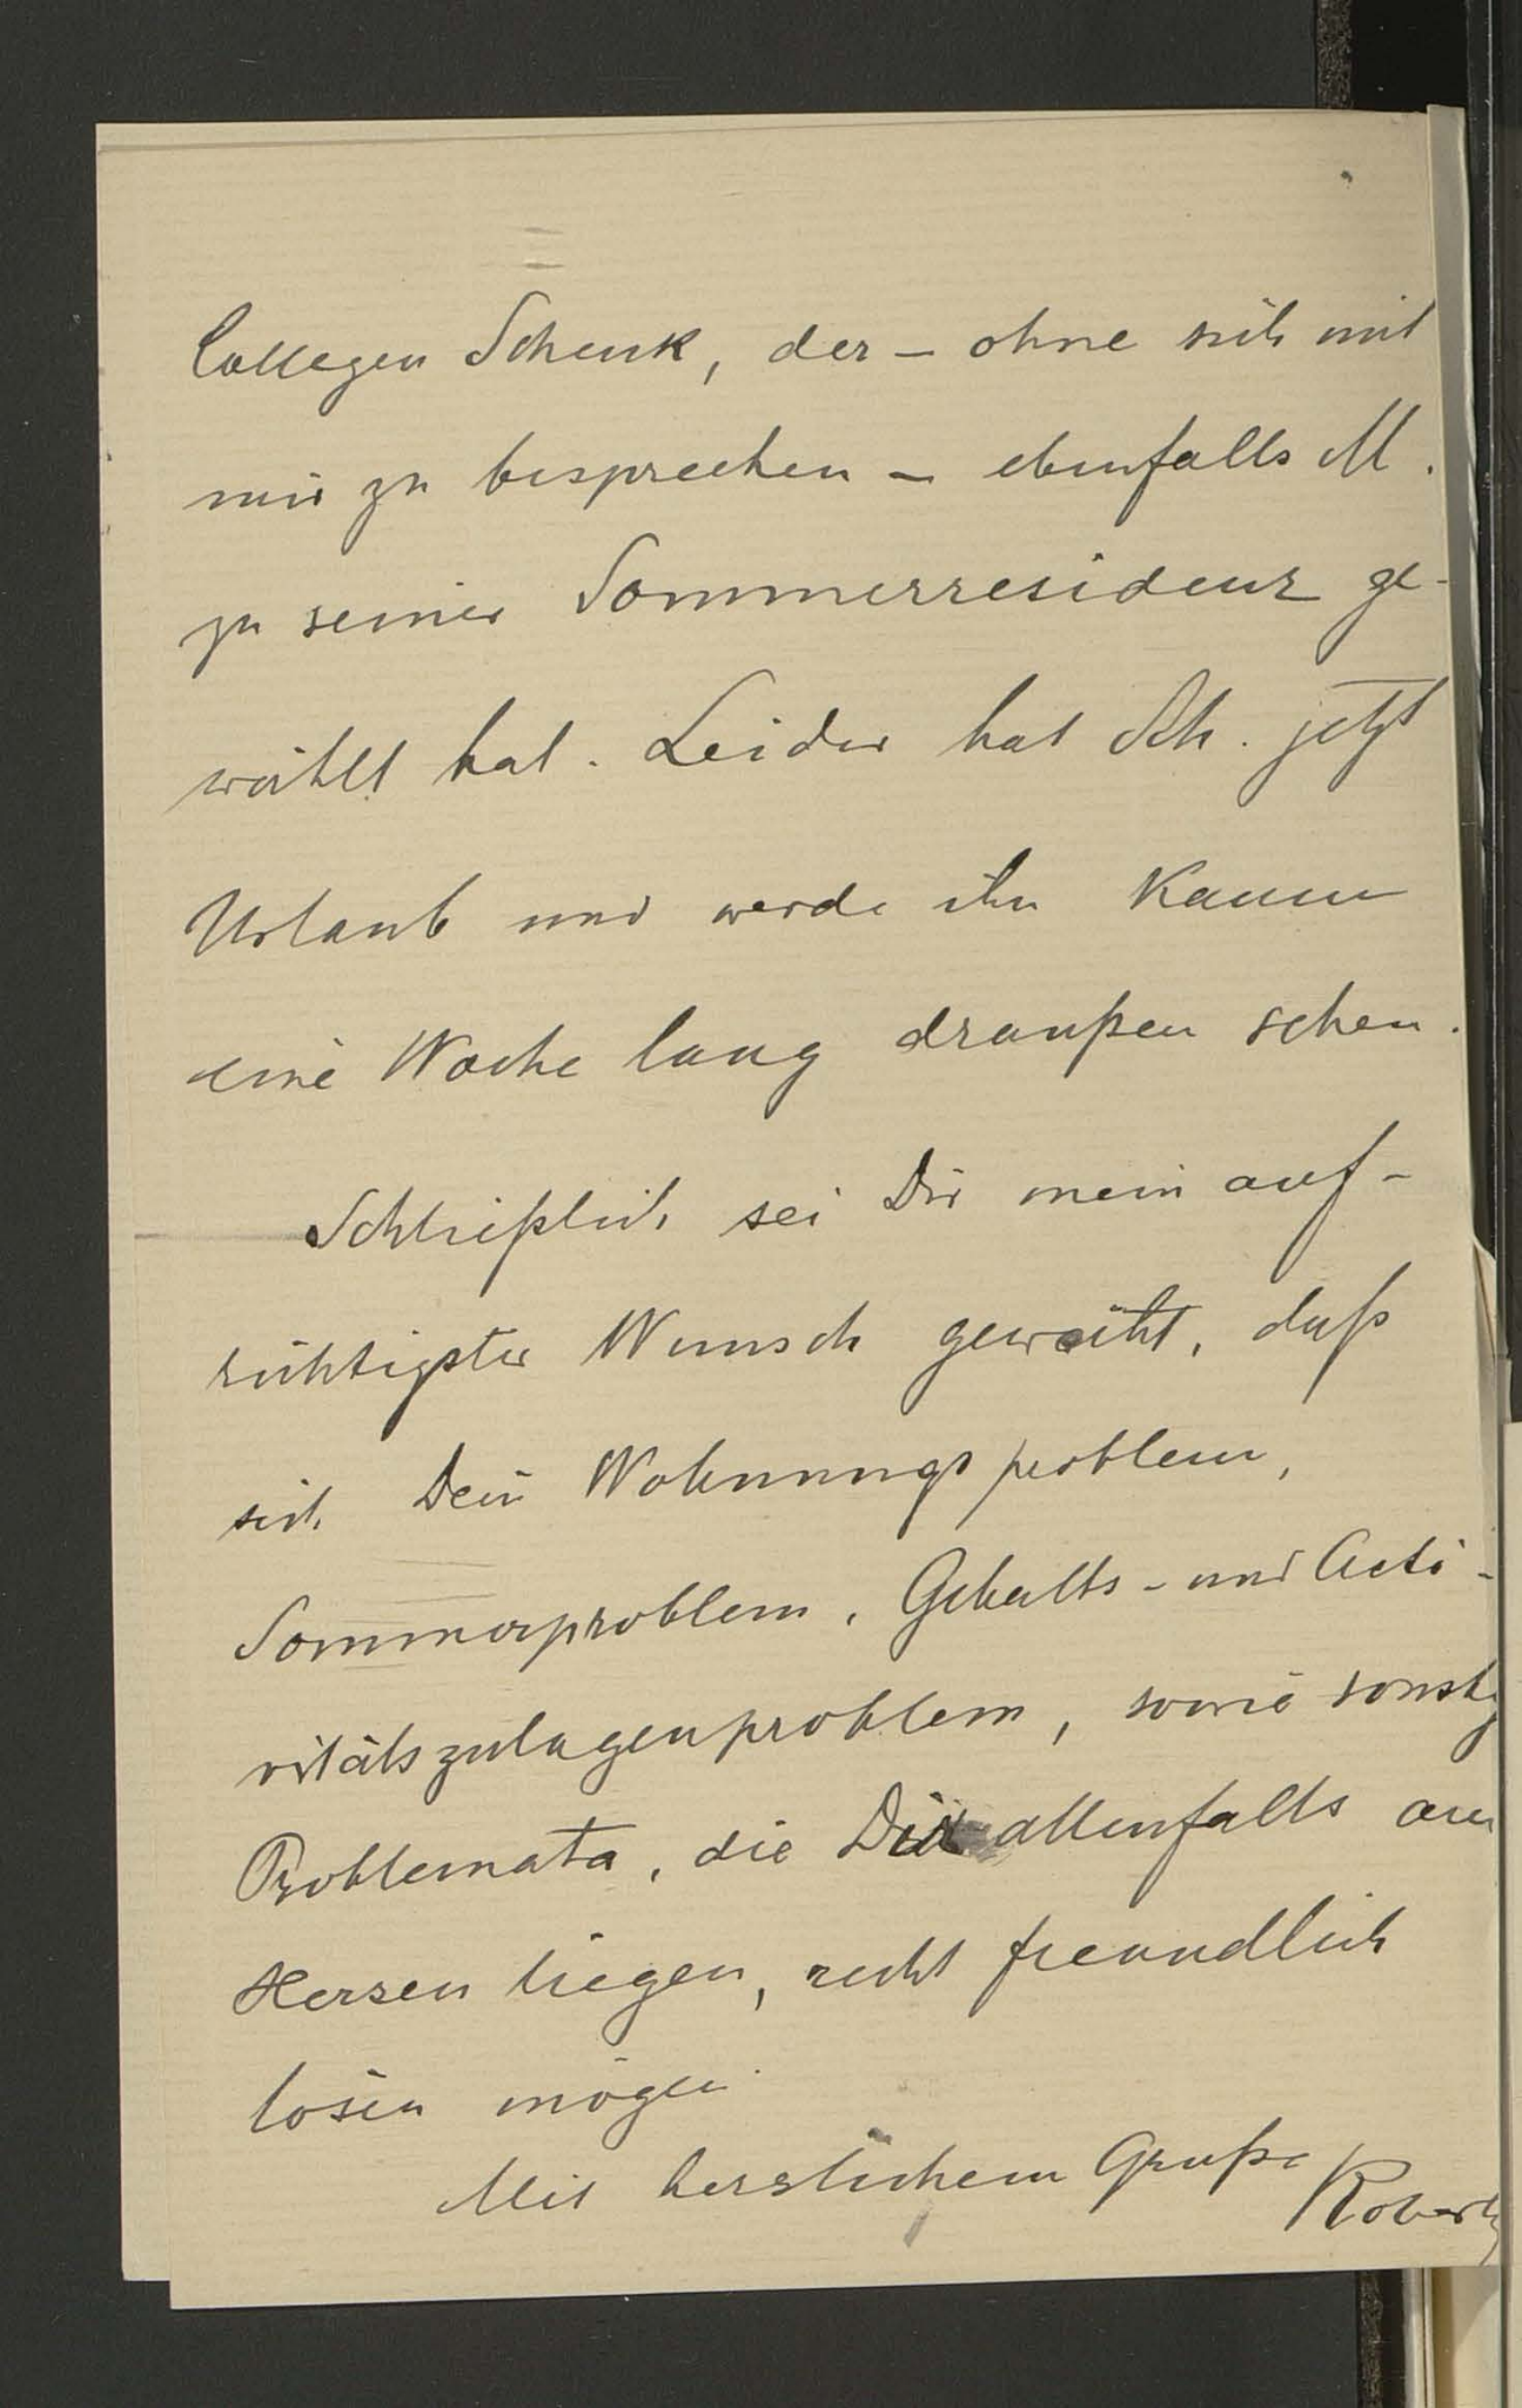 Collegen Schenk, der – ohne sich mit
mir zu besprechen – ebenfalls M.
zu seiner Sommerresidenz ge-
wählt hat. Leider hat Sch. jetzt
Urlaub und werde ihn kaum
eine Woche lang draußen sehen.
Schließlich sei Dir mein auf-
richtigster Wunsch geweiht, daß
sich Dein Wohnungsproblem,
Sommerproblem, Gehalts- und Acti-
vitätszulagenproblem, sowie sonstg
Problemata, die Dir allenfalls am
Herzen liegen, recht freundlich
lösen mögen.
Mit herzlichem Gruße Robert